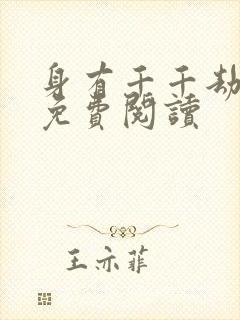 身有千千劫
免費閱讀
王亦菲